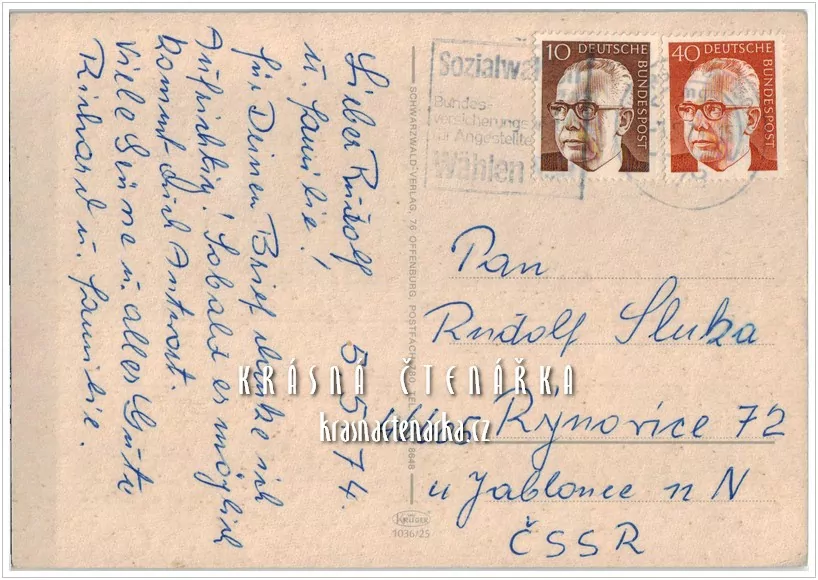 Lieber Rudolf
u. Familie! 5.5.74.
für Deinen Brief danke ich
Aufrichtig! Sobald es möglich
kommt auch Antwort.
Viele Grüsse u. alles Gute
Richard u. Familie.
SCHWARZWALD-VERLAG, 76 OFFENBURG, POSTFACH
8648
KRÜGER
1036/25
Sozialwahlen
Bundes-
versicherungs
für Angestellte
Wählen
10 DEUTSCHE BUNDESPOST
40 DEUTSCHE BUNDESPOST
Pan
Rudolf Sluka
Rýnovice 72
u Jablonce n N
ČSSR
KRÁSNÁ ČTENÁŘKA
krasnactenarka.cz